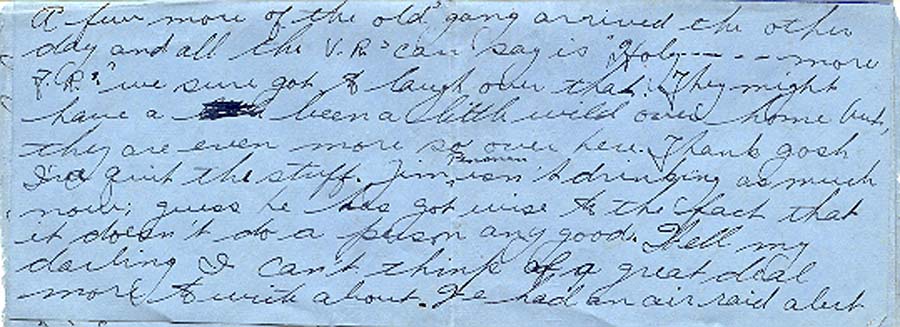 A few more of the "old" gang arrived the other
day and all the V.R.s can say is "Holy - - - - more
F.R.s" we sure got a laugh over that. They might
have a been a little wild over home but,
they are even more so over here. Thank gosh
I've quit the stuff. Jim isn't drinking as much
now; guess he has got wise to the fact that
it doesn't do a person any good. Well my
darling I can't think of a great deal
more to write about. We had an air raid alert